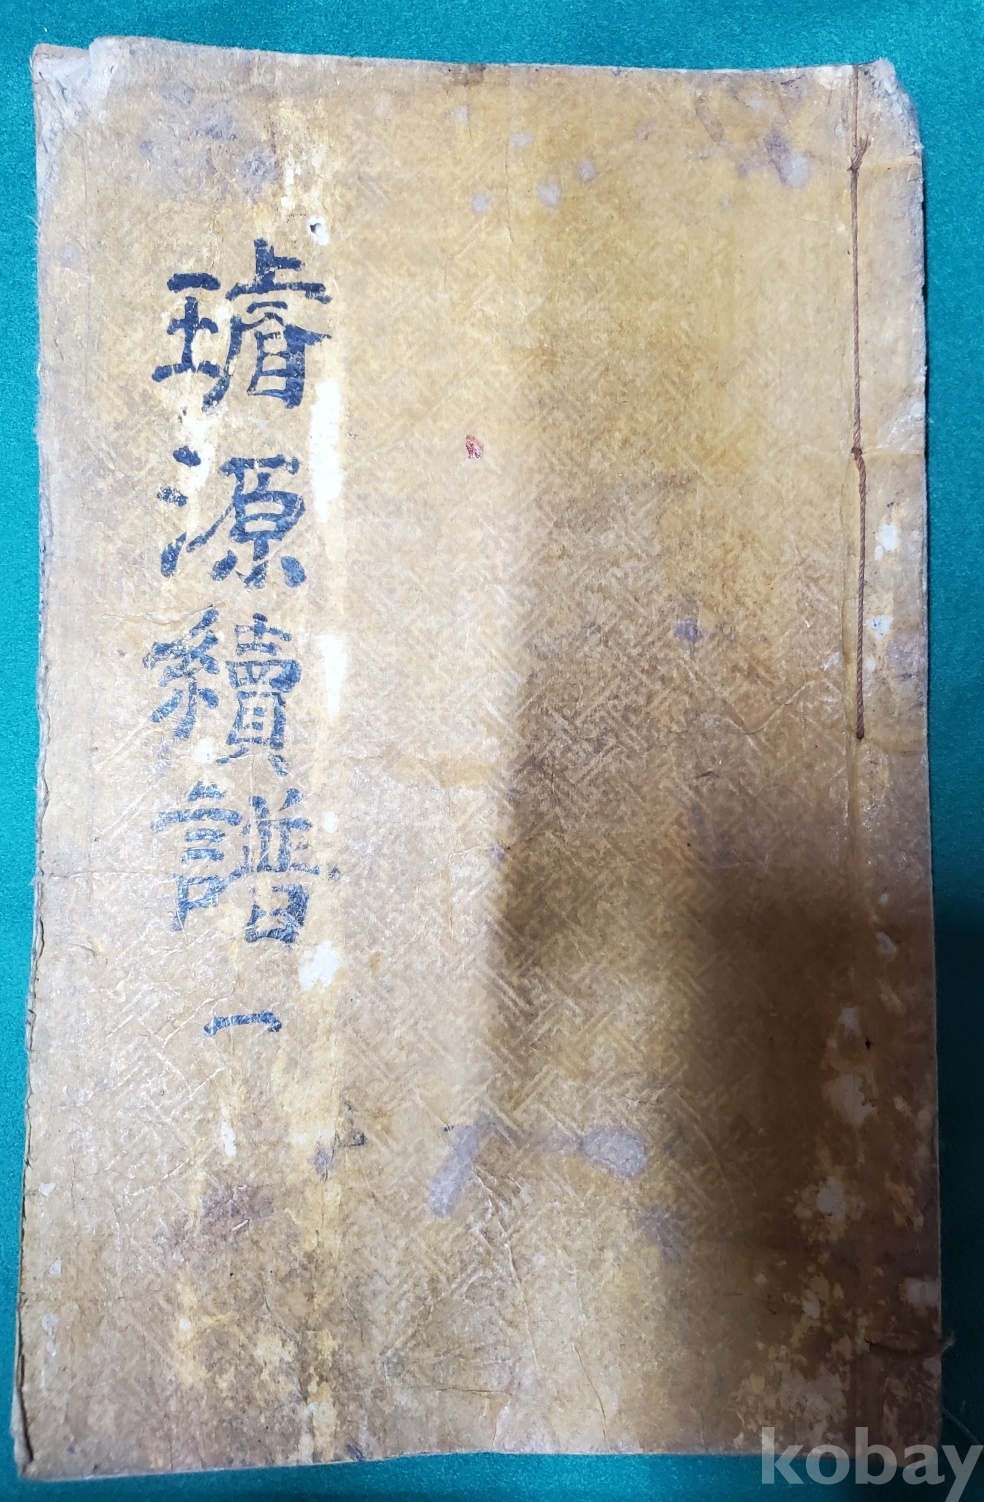 璿源續譜 一
kobay